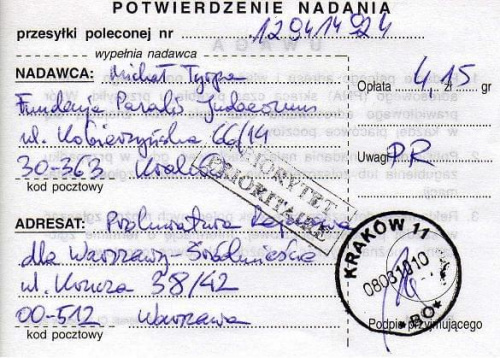 POTWIERDZENIE NADANIA
przesyłki poleconej nr 129414924
wypełnia nadawca
NADAWCA: Michał Tyrpa
Fundacja Paradis Judaeorum
ul. Kobierzyńska 66/14
30-363 Kraków
kod pocztowy
Opłata 4,15 zł gr
Uwagi PR
PRIORYTET
PRIORITAIRE
ADRESAT: Prokuratura Rejonowa
dla Warszawy-Śródmieście
ul. Krucza 38/42
00-512 Warszawa
kod pocztowy
KRAKÓW 11
080310
*BO*
Podpis przyjmującego